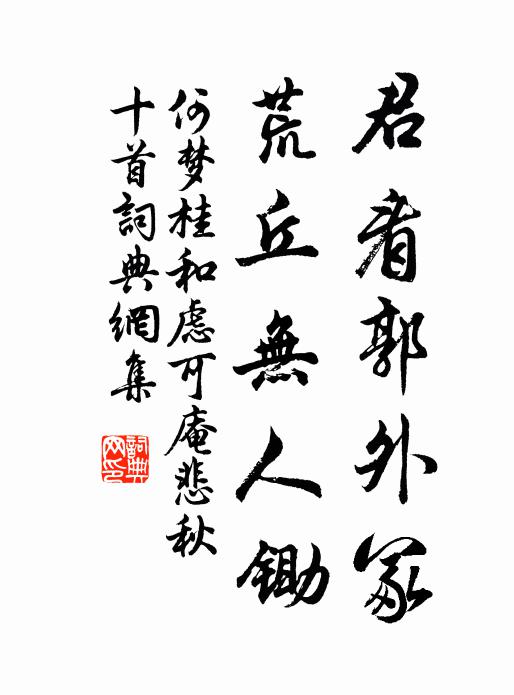 君看郭外冢
荒丘無人鋤
何梦桂和慮可庵悲秋
十首詞典網集
詞典网印